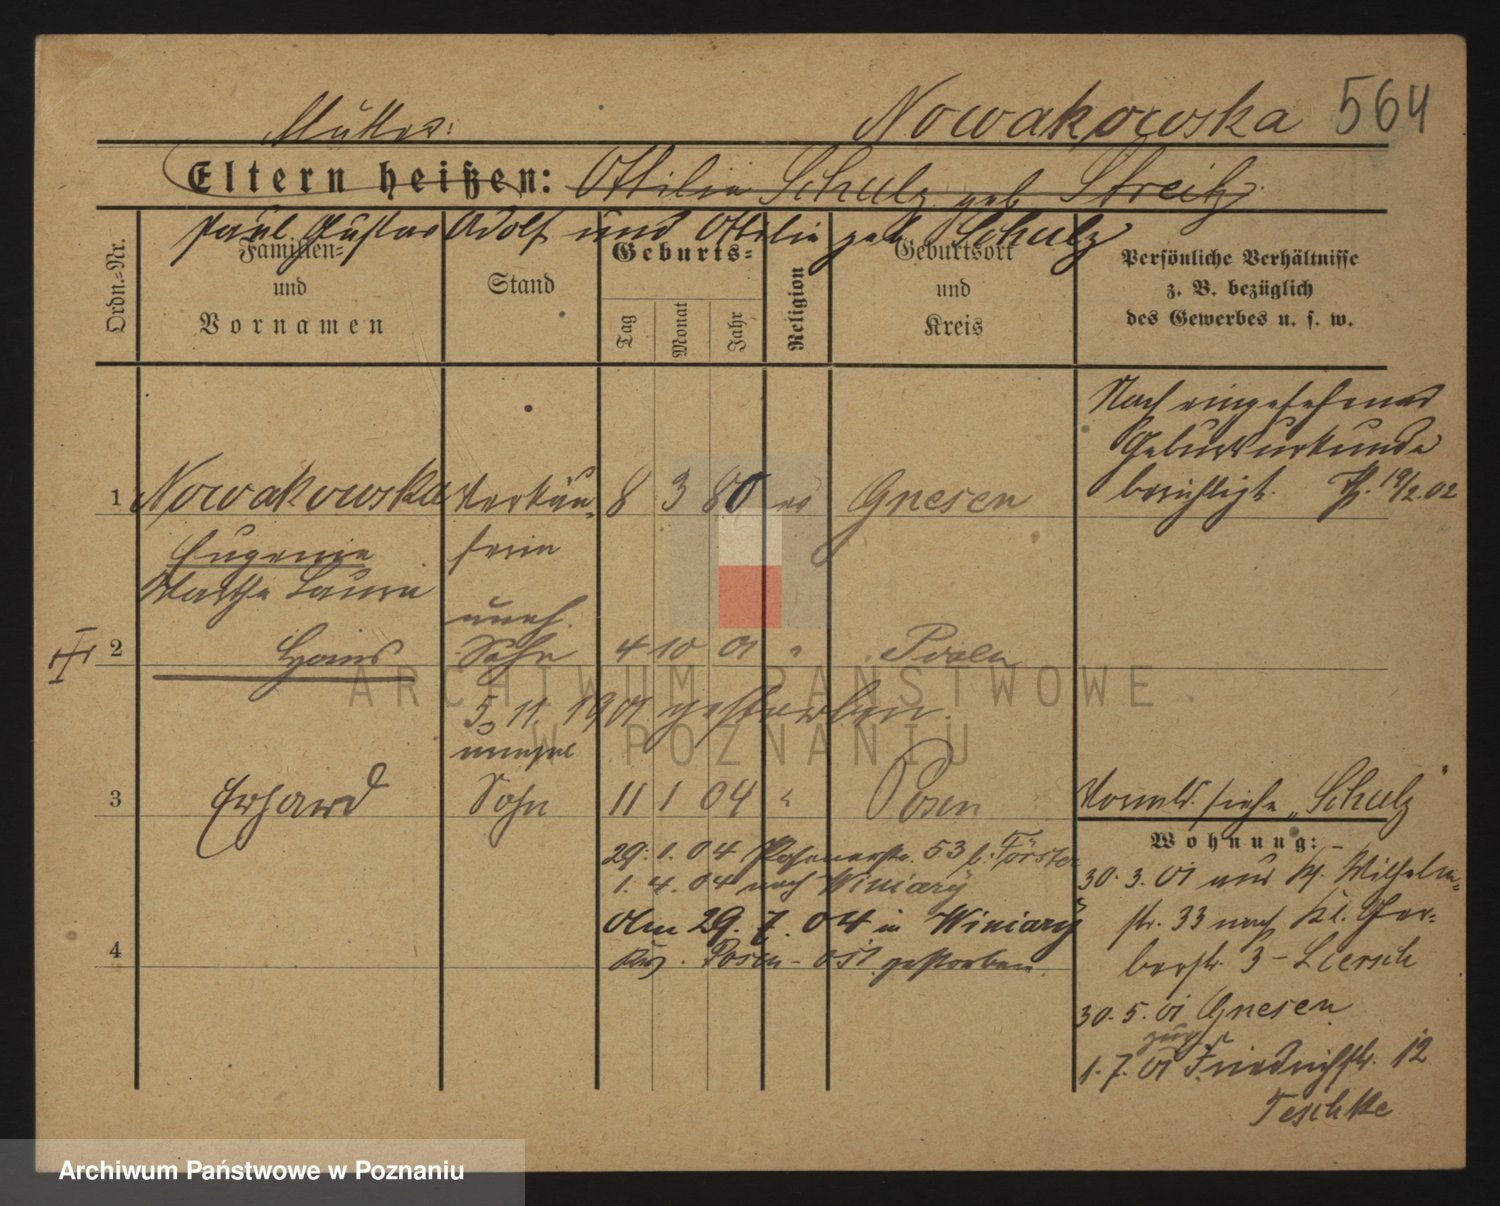 Mutter:
Nowakowska 564
Eltern heißen: Ottilie Schulz geb. Streitz
Paul Gustav Adolf und Ottilie geb Schulz
Ordn.-Nr.
Familien-
und
Vornamen
Stand
Geburts-
Tag
Monat
Jahr
Religion
Geburtsort
und
Kreis
Persönliche Verhältnisse
z. B. bezüglich
des Gewerbes u. s. w.
Nach eingesehener
Geburtsurkunde
berichtigt. 19/2.02
1 Nowakowska Verkäu- 8 3 80 ev Gnesen
Eugenie ferin
Martha Laura
uneh.
2 Hans Sohn 4 10 01 " Posen
5. 11. 1901 gestorben.
unehel
3 Erhard Sohn 11 1 04 " Posen
Vormld. siehe „Schulz"
Wohnung:
29. 1. 04 Posenerstr. 53 b. Förster
1. 4. 04 nach Winiary
Am 29. 7. 04 in Winiary
4 Krs. Posen-Ost gestorben.
30. 3. 01 aus Wilhelm-
str. 33 nach Kl. Ger-
berstr. 3 - Liersch
30. 5. 01 Gnesen
zur
1. 7. 01 Friedrichstr. 12
Teschke
ARCHIWUM PAŃSTWOWE
W POZNANIU
Archiwum Państwowe w Poznaniu